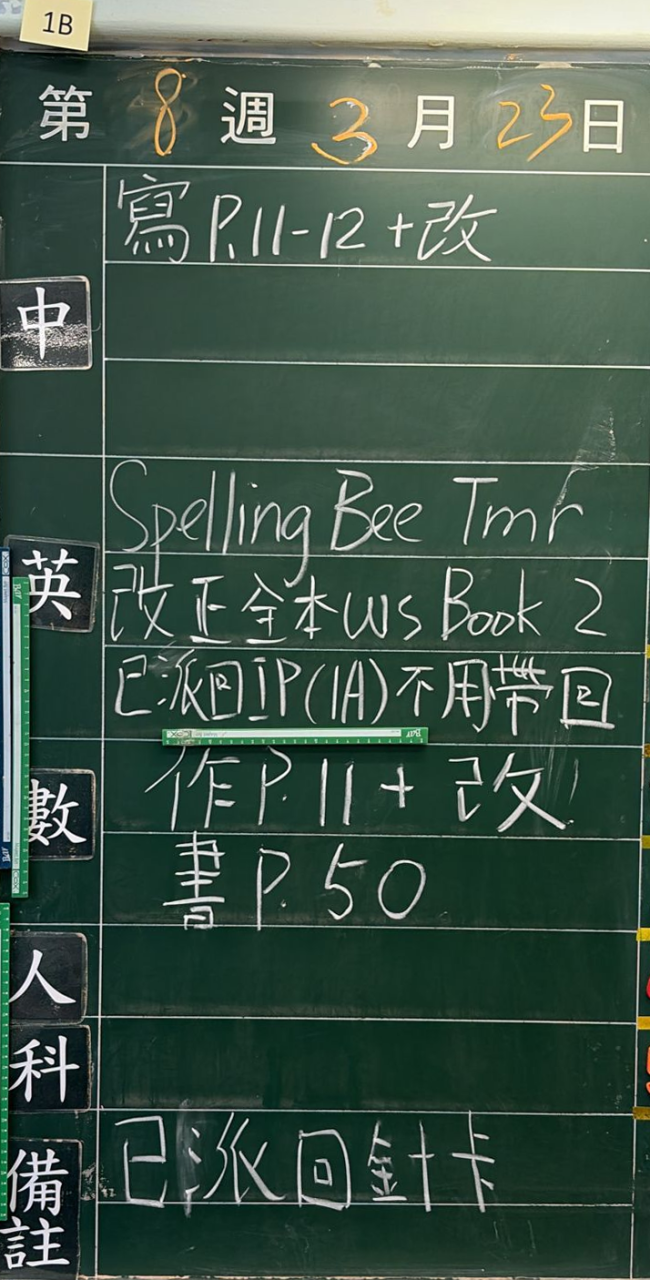 1B
第 8 週 3 月 23 日
寫 P.11-12 + 改
中
Spelling Bee Tmr
英
改正全本 WS Book 2
已派回 IP (1A) 不用帶回
作 P.11 + 改
數
書 P.50
人
科
已派回針卡
備註